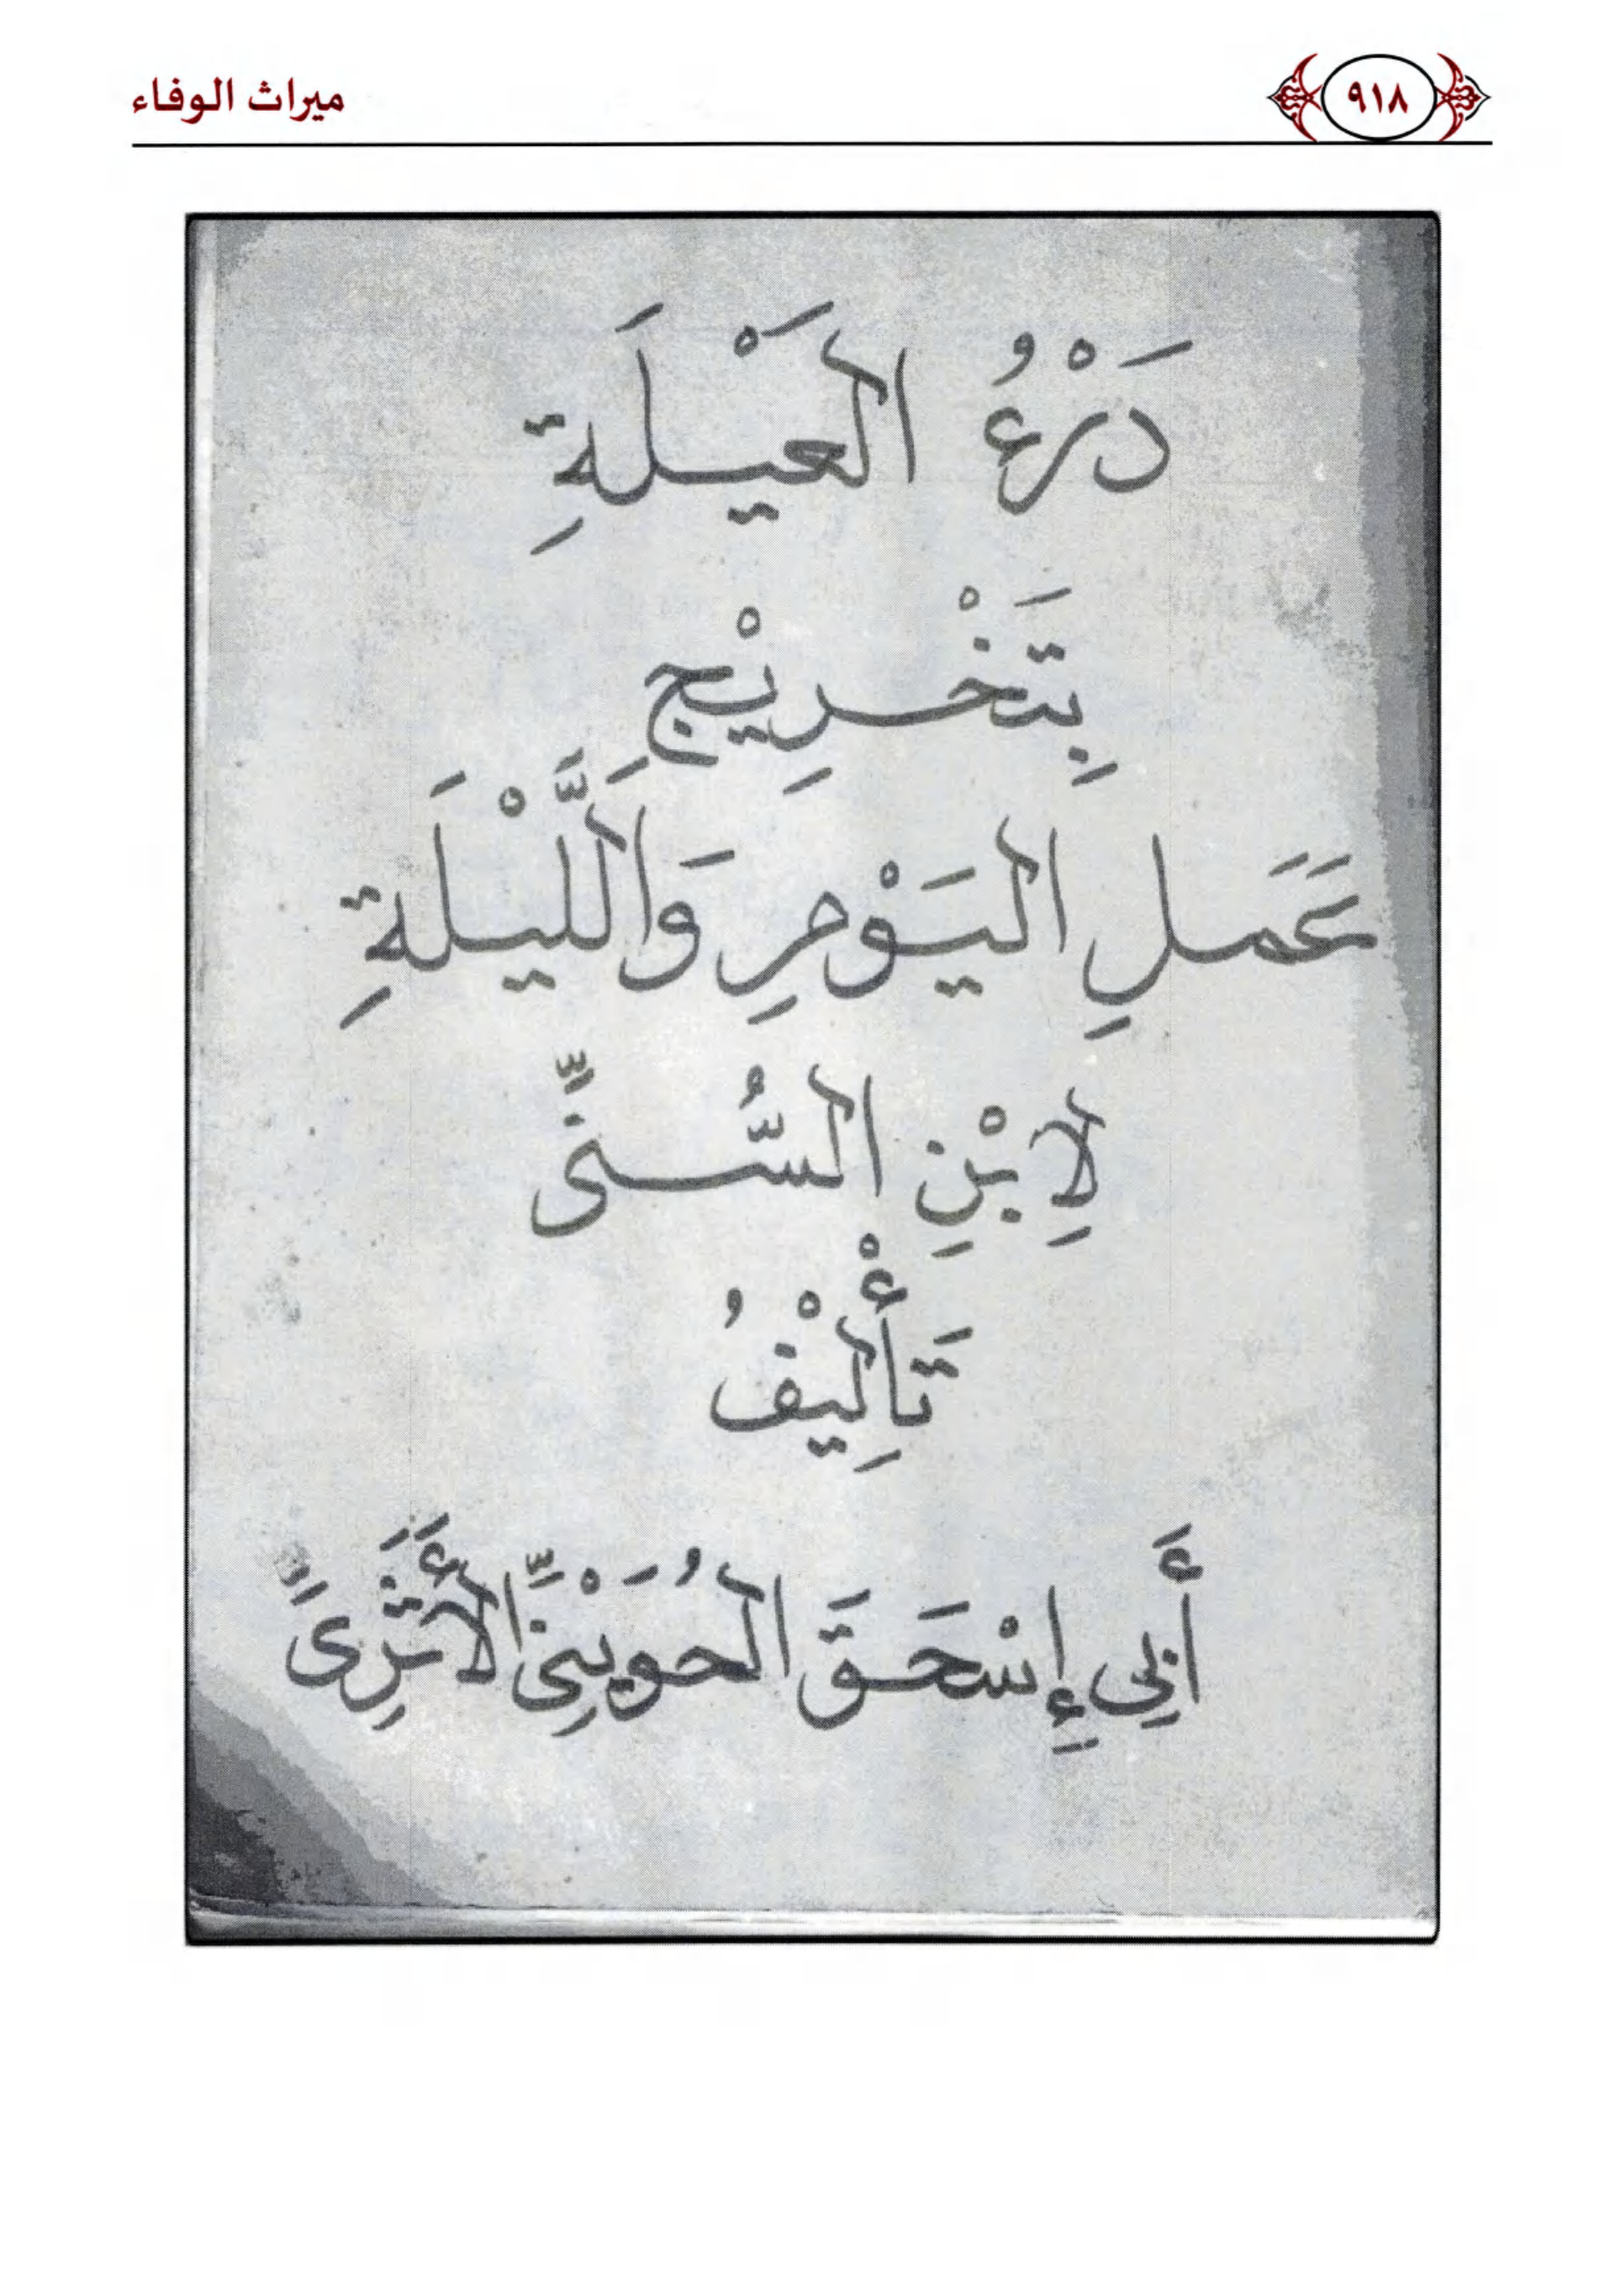 ميراث الوفاء
٩١٨
دَرْءُ العَيْلَةِ
بِتَخْرِيْجِ
عَمَلِ اليَوْمِ وَاللَّيْلَةِ
لِابْنِ السُّنىِّ
تَأْلِيْفُ
أَبِي إِسْحَقَ الحُوَيْنِىِّ الأَثَرِىِّ